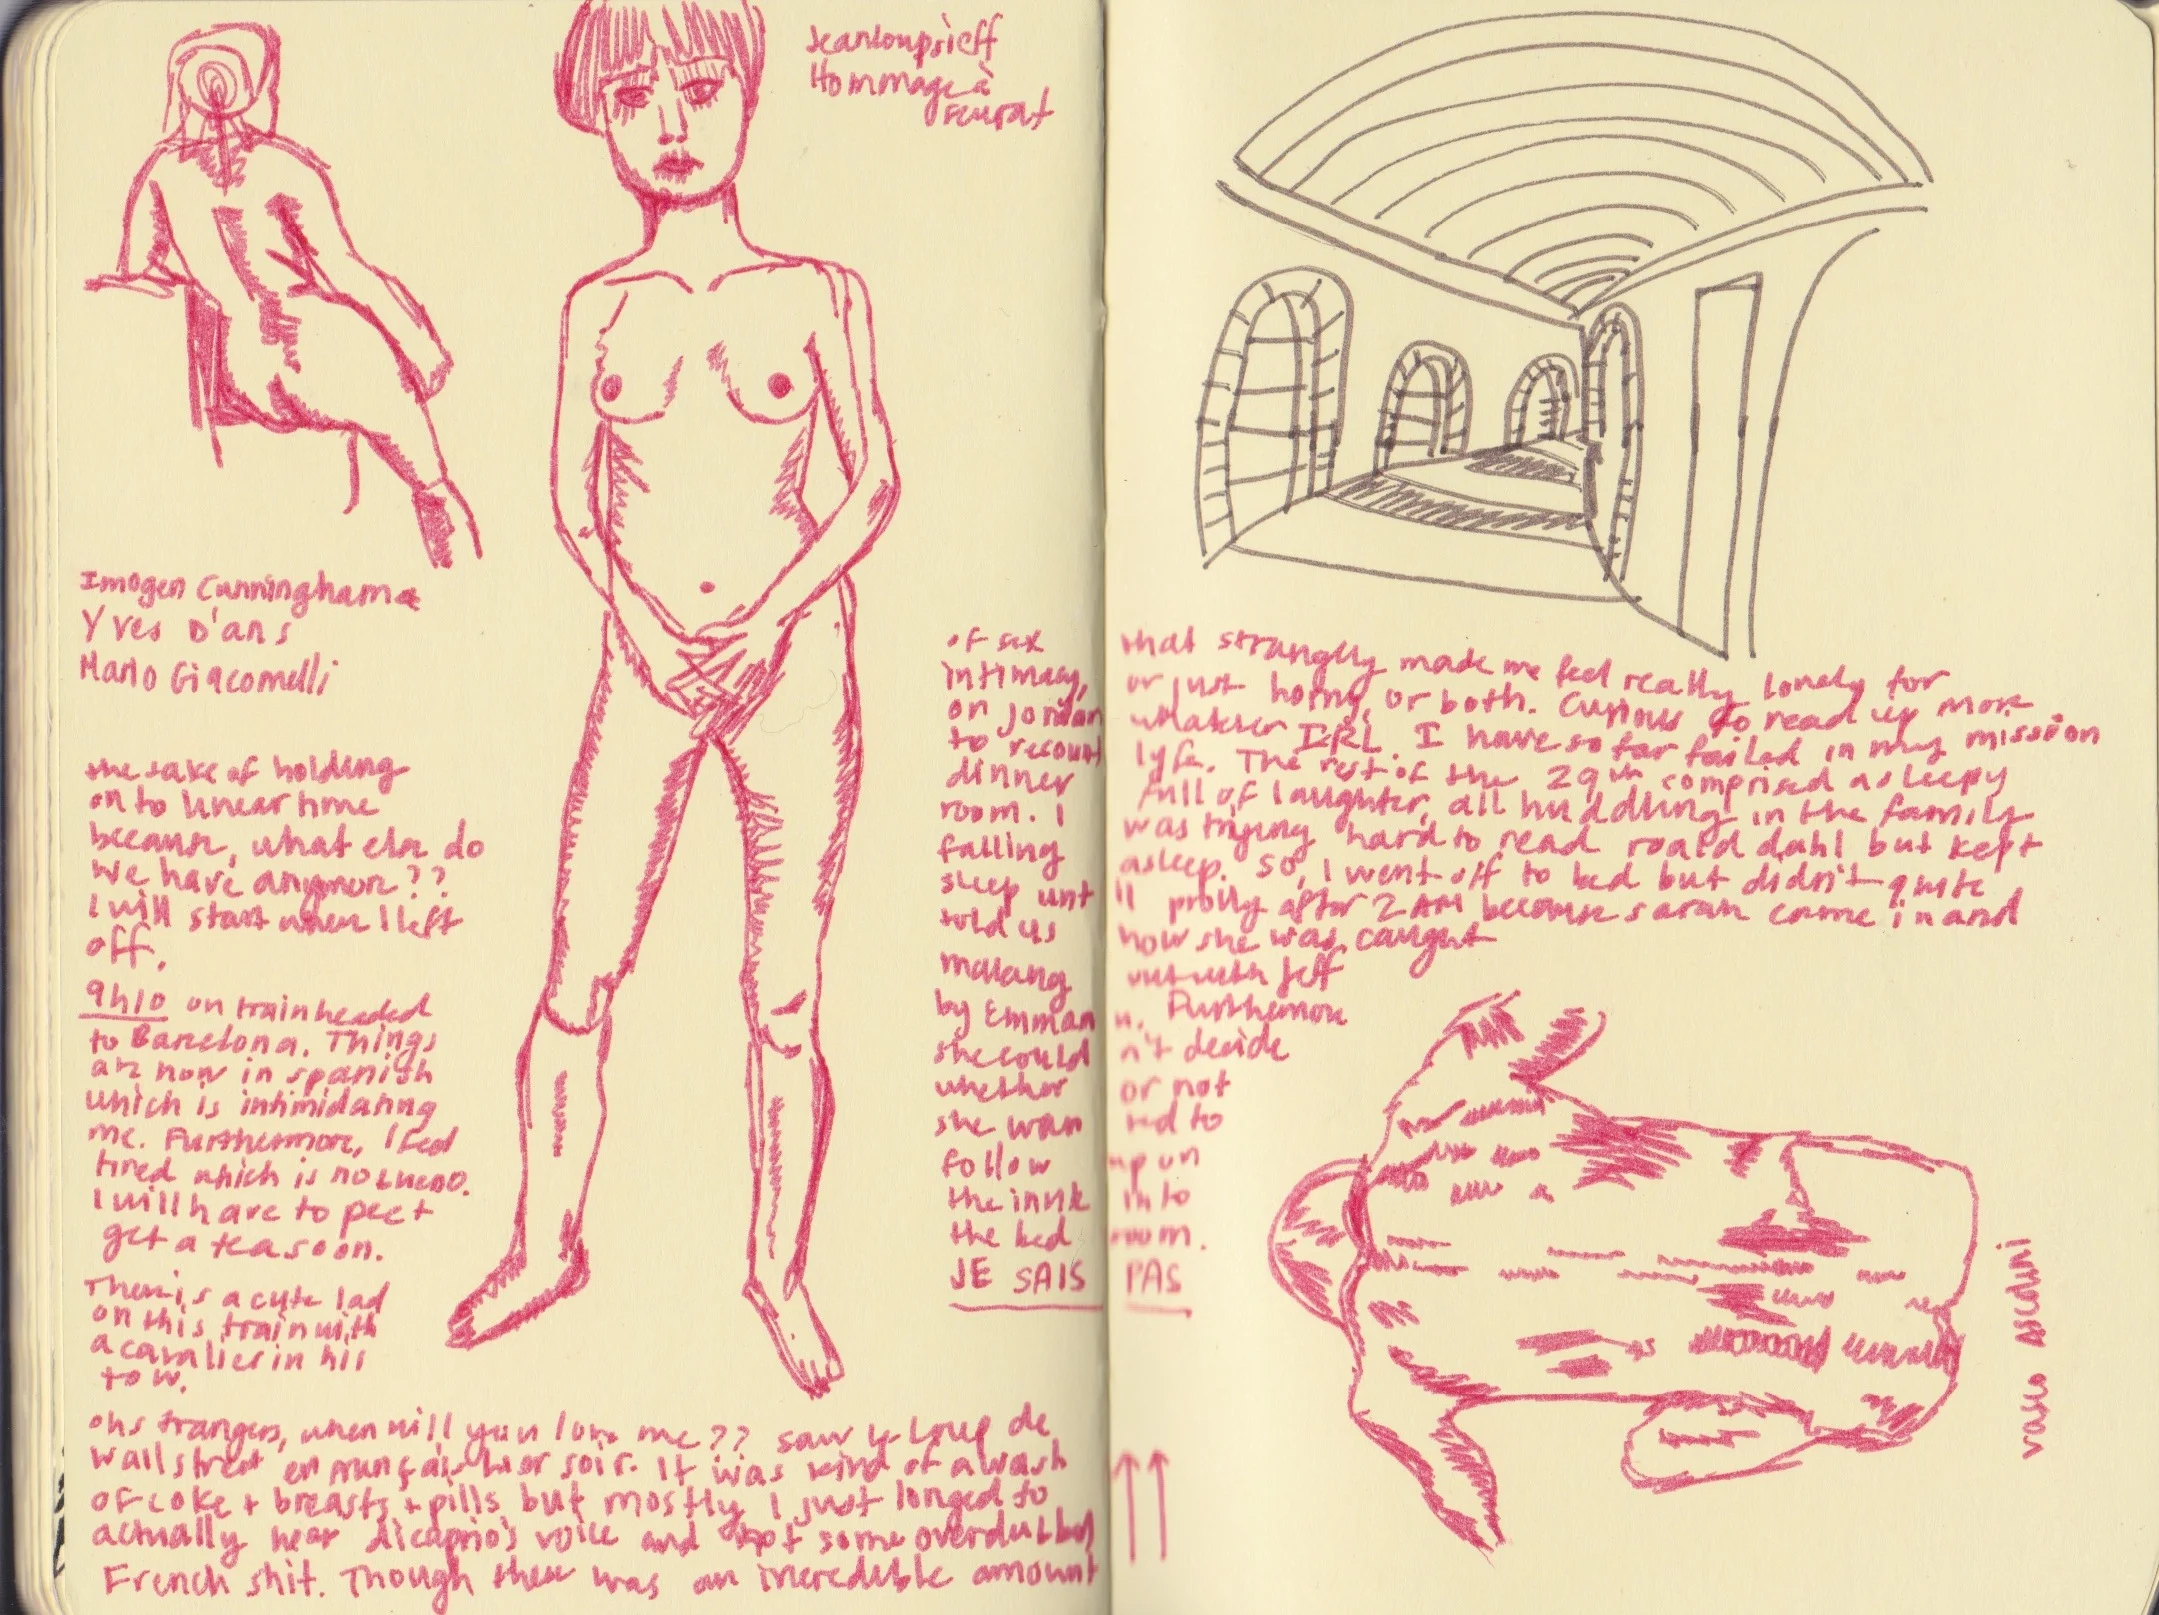 Jeanloupsieff
Hommage à
seurat
Imogen Cunningham
Yves D'ans
Mario Giacomelli
the sake of holding
on to linear time
because, what else do
we have anymore??
I will start when I left
off.
9h10 on train headed
to Barcelona. Things
are now in spanish
which is intimidating
me. Furthermore, I feel
tired which is no bueno.
I will have to pee +
get a tea soon.
There is a cute lad
on this train with
a cavalier in his
tow.
oh strangers, when will you love me?? saw le Loup de
Wall street en français hier soir. It was kind of a wash
of coke + breasts + pills but mostly I just longed to
actually hear dicaprio's voice and not some overdubbed
French shit. Though there was an incredible amount
of sex that strangely made me feel really lonely for
intimacy, or just horny, or both. Curious to read up more
on Jordan whatever IRL. I have so far failed in my mission
to recount lyfe. The rest of the 29th comprised a sleepy
dinner full of laughter, all huddling in the family
room. I was trying hard to read roald dahl but kept
falling asleep. So, I went off to bed but didn't quite
sleep until prolly after 2AM because sarah came in and
told us how she was caught
making out with Jeff
by Emmanu. Furthermore
she couldn't decide
whether or not
she wanted to
follow up on
the invite into
the bedroom.
JE SAIS PAS
vasco Ascolini